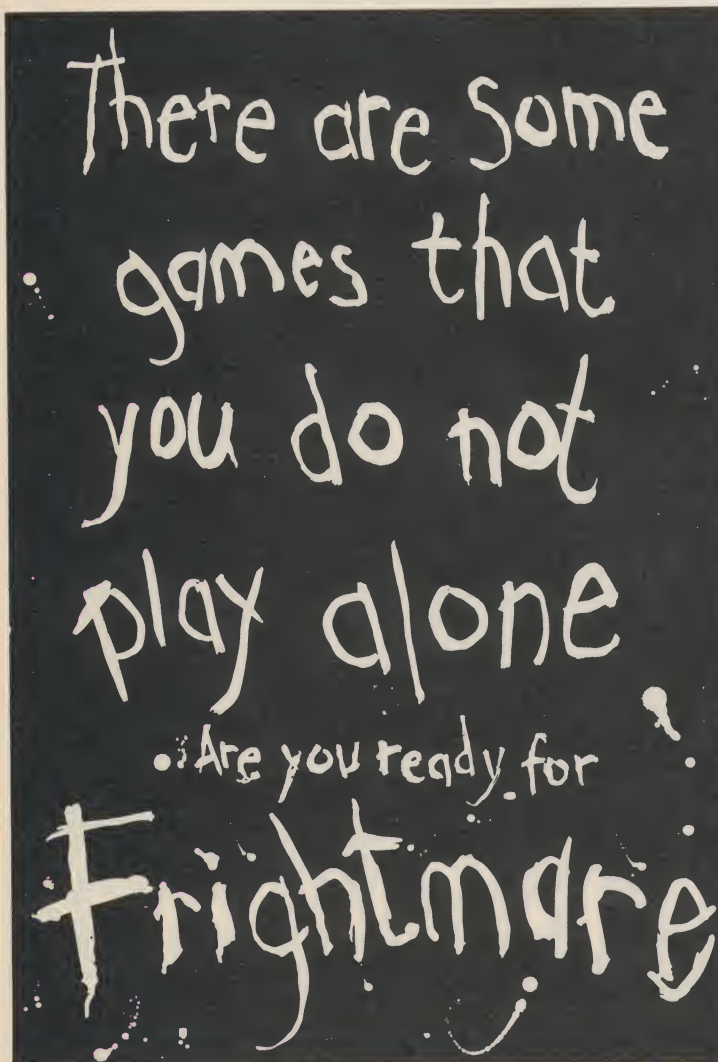 There are some
games that
you do not
play alone
Are you ready for
Frightmare